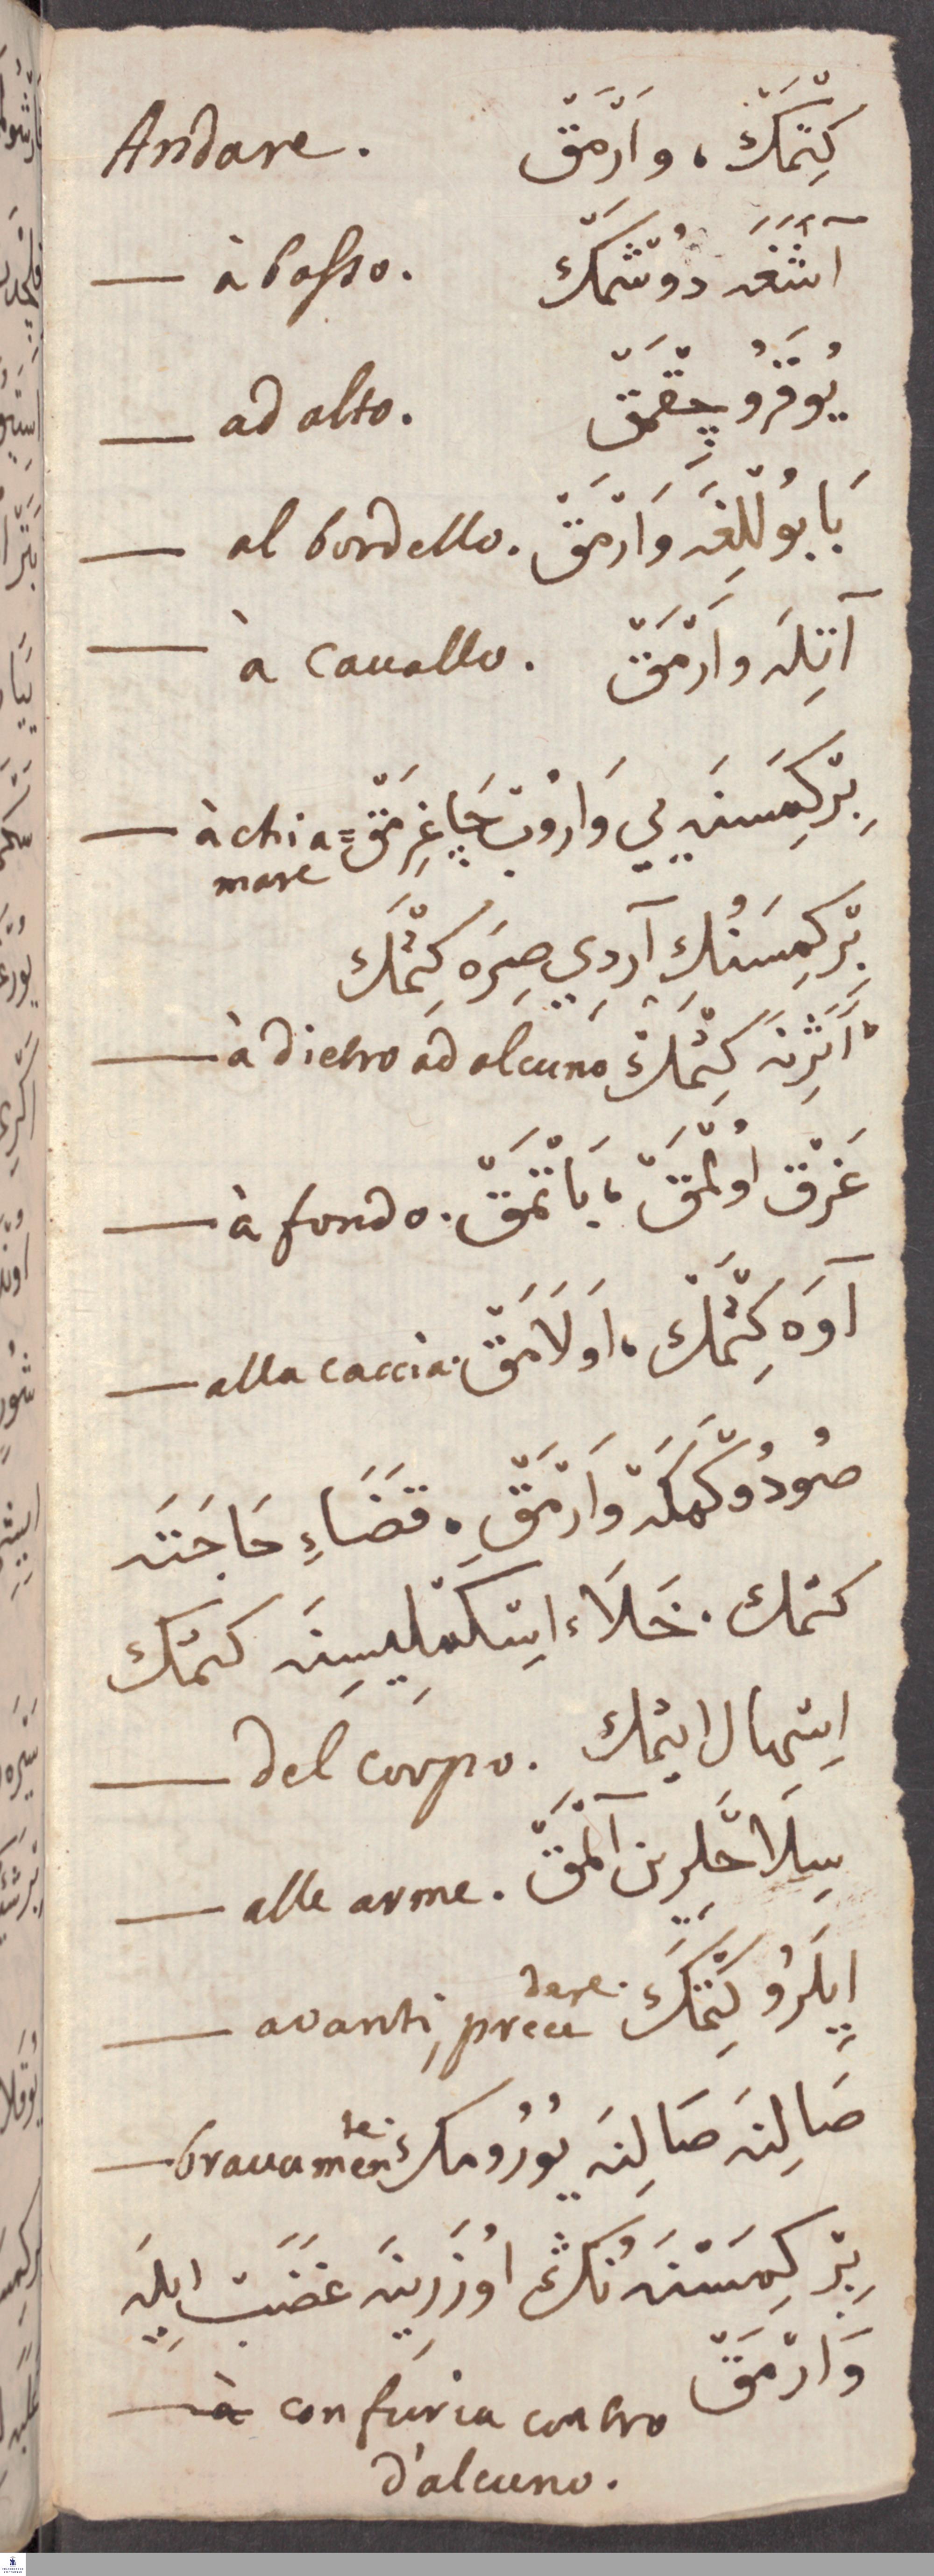 Andare. كِتمَكْ، وارْمَقْ
— à basso. آشَغَه دُوشمَكْ
— ad alto. يُوقَرُو چِقْمَقْ
— al bordello. بَابُولُلِغَه وَارْمَقْ
— à cauallo. آتِلَه وارْمَقْ
— à chia= بِرْ كِمَسنَه يي وَارُوبْ چَاغِرمَقْ
mare
بِرْ كِمسَنُكِ آردِي صِرَه كِتْمَكْ
— à dietro ad alcuno آثَرِنَه كِتْمَكْ
— à fondo. غَرْقْ اُولمَقْ، بَاتْمَقْ
— alla caccia. آوَه كِتْمَكْ، اَولَامَقْ
صُو دُوكْمَكَه وَارْمَقْ. قَضَاءِ حَاجَتَه
كتمك. خَلَاء اِيسكَمْلِيسِنَه كتمك
— del corpo. اِسهال ايتمك
— alle arme. سِلَاحْلَرِين آلْمَقْ
— avanti, prece dere. اِيلَرُو كِتْمَكْ
— bravamente. صَالِنَه صَالِنَه يُورُومك
بِرْ كِمَسْنَه نُكْ اُوزَرِينَه غَضَبْ اِيلَه
وَارْمَقْ
— à con furia contro
d'alcuno.